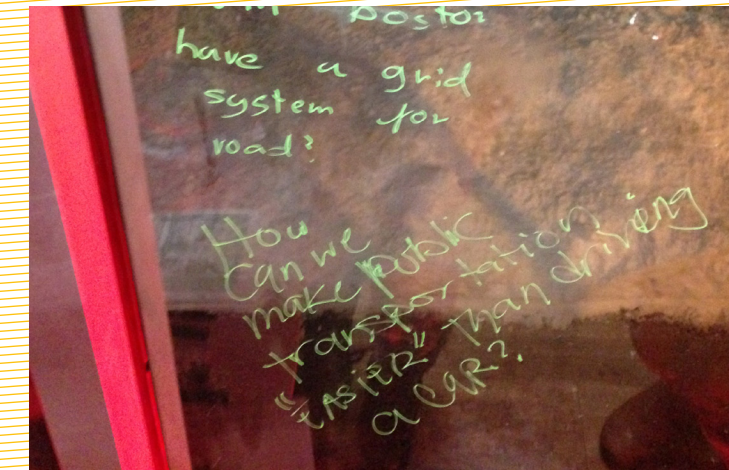 Bostor
have a grid
system for
road?
How
can we
make public
transportation
"EASiER" than driving
a CAR?